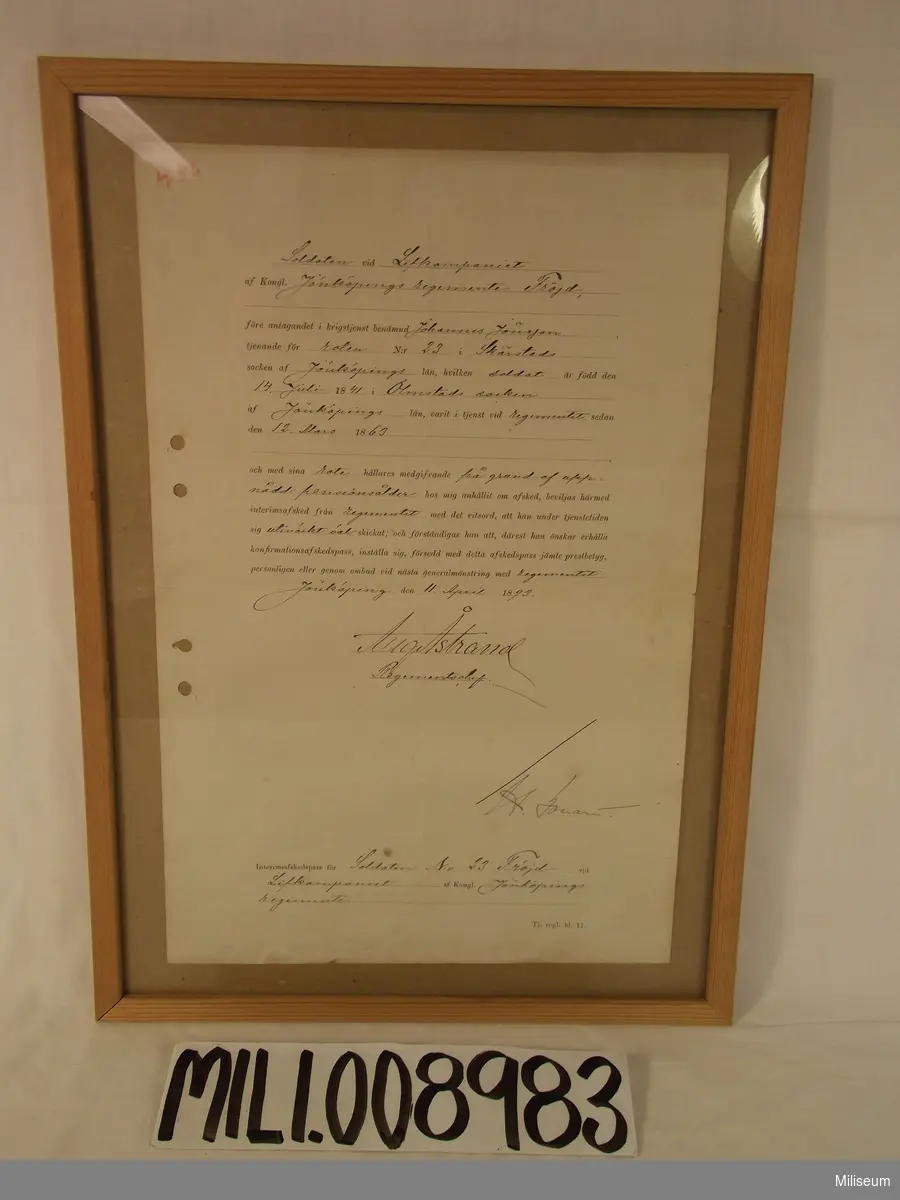 Soldaten vid Lifkompaniet
af Kongl. Jönköpings regemente Fröjd,
före antagandet i krigstjenst benämnd Johannes Jönsson
tjenande för roten N:r 23 i Skärstads
socken af Jönköpings län, hvilken soldat är född den
14 Juli 1841 i Ölmstads socken
af Jönköpings län, varit i tjenst vid regementet sedan
den 12 Mars 1863
och med sina rote hållares medgifvande på grund af upp-
nådd pensionsålder hos mig anhållit om afsked, beviljas härmed
interimsafsked från regementet med det vitsord, att han under tjenstetiden
sig utmärkt väl skickat; och förständigas han att, därest han önskar erhålla
konfirmationsafskedspass, inställa sig, försedd med detta afskedspass jämte prestbetyg,
personligen eller genom ombud vid nästa generalmönstring med regementet.
Jönköping den 11 April 1893.
Aug Åstrand
Regementschef.
Interimsafskedspass för Soldaten No 23 Fröjd vid
Lifkompaniet af Kongl. Jönköpings
regemente
Tj. regl. bl. 11.
MILI.008983
Miliseum